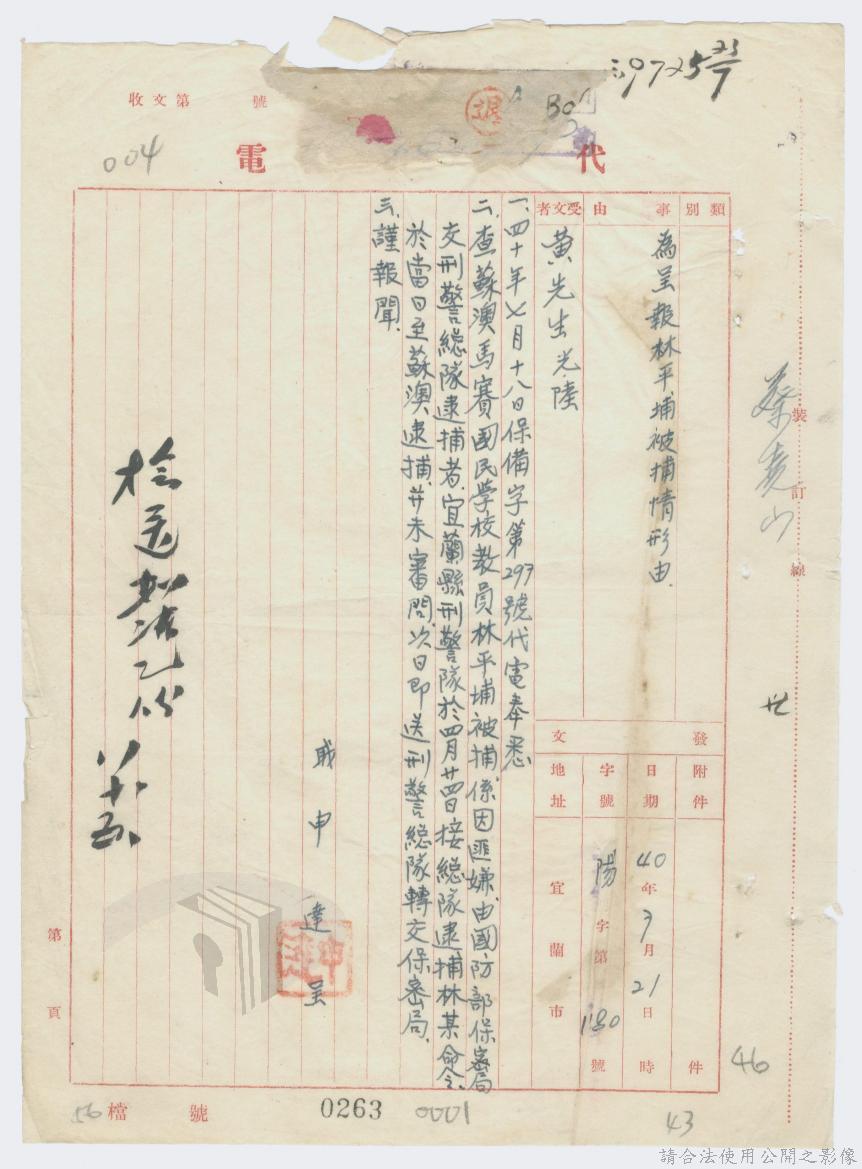 39725 21/7
收文第 號
004
退
Bo
代電
類別
事由
為呈報林平埔被捕情形由.
受文者
黃先生光陸
發文
附件 件
日期 40年7月21日 時
字號 陽字第1180號
地址 宜蘭市
一、四十年七月十八日保備字第297號代電奉悉.
二、查蘇澳馬賽國民學校教員林平埔被捕,係因匪嫌,由國防部保密局
交刑警總隊逮捕者.宜蘭縣刑警隊於四月廿四日接總隊逮捕林某命令.
於當日至蘇澳逮捕,并未審問,次日即送刑警總隊轉交保密局.
三、謹報聞.
職申達呈
裝訂線
第頁
檔號
56
0263
0001
43
46
請合法使用公開之影像